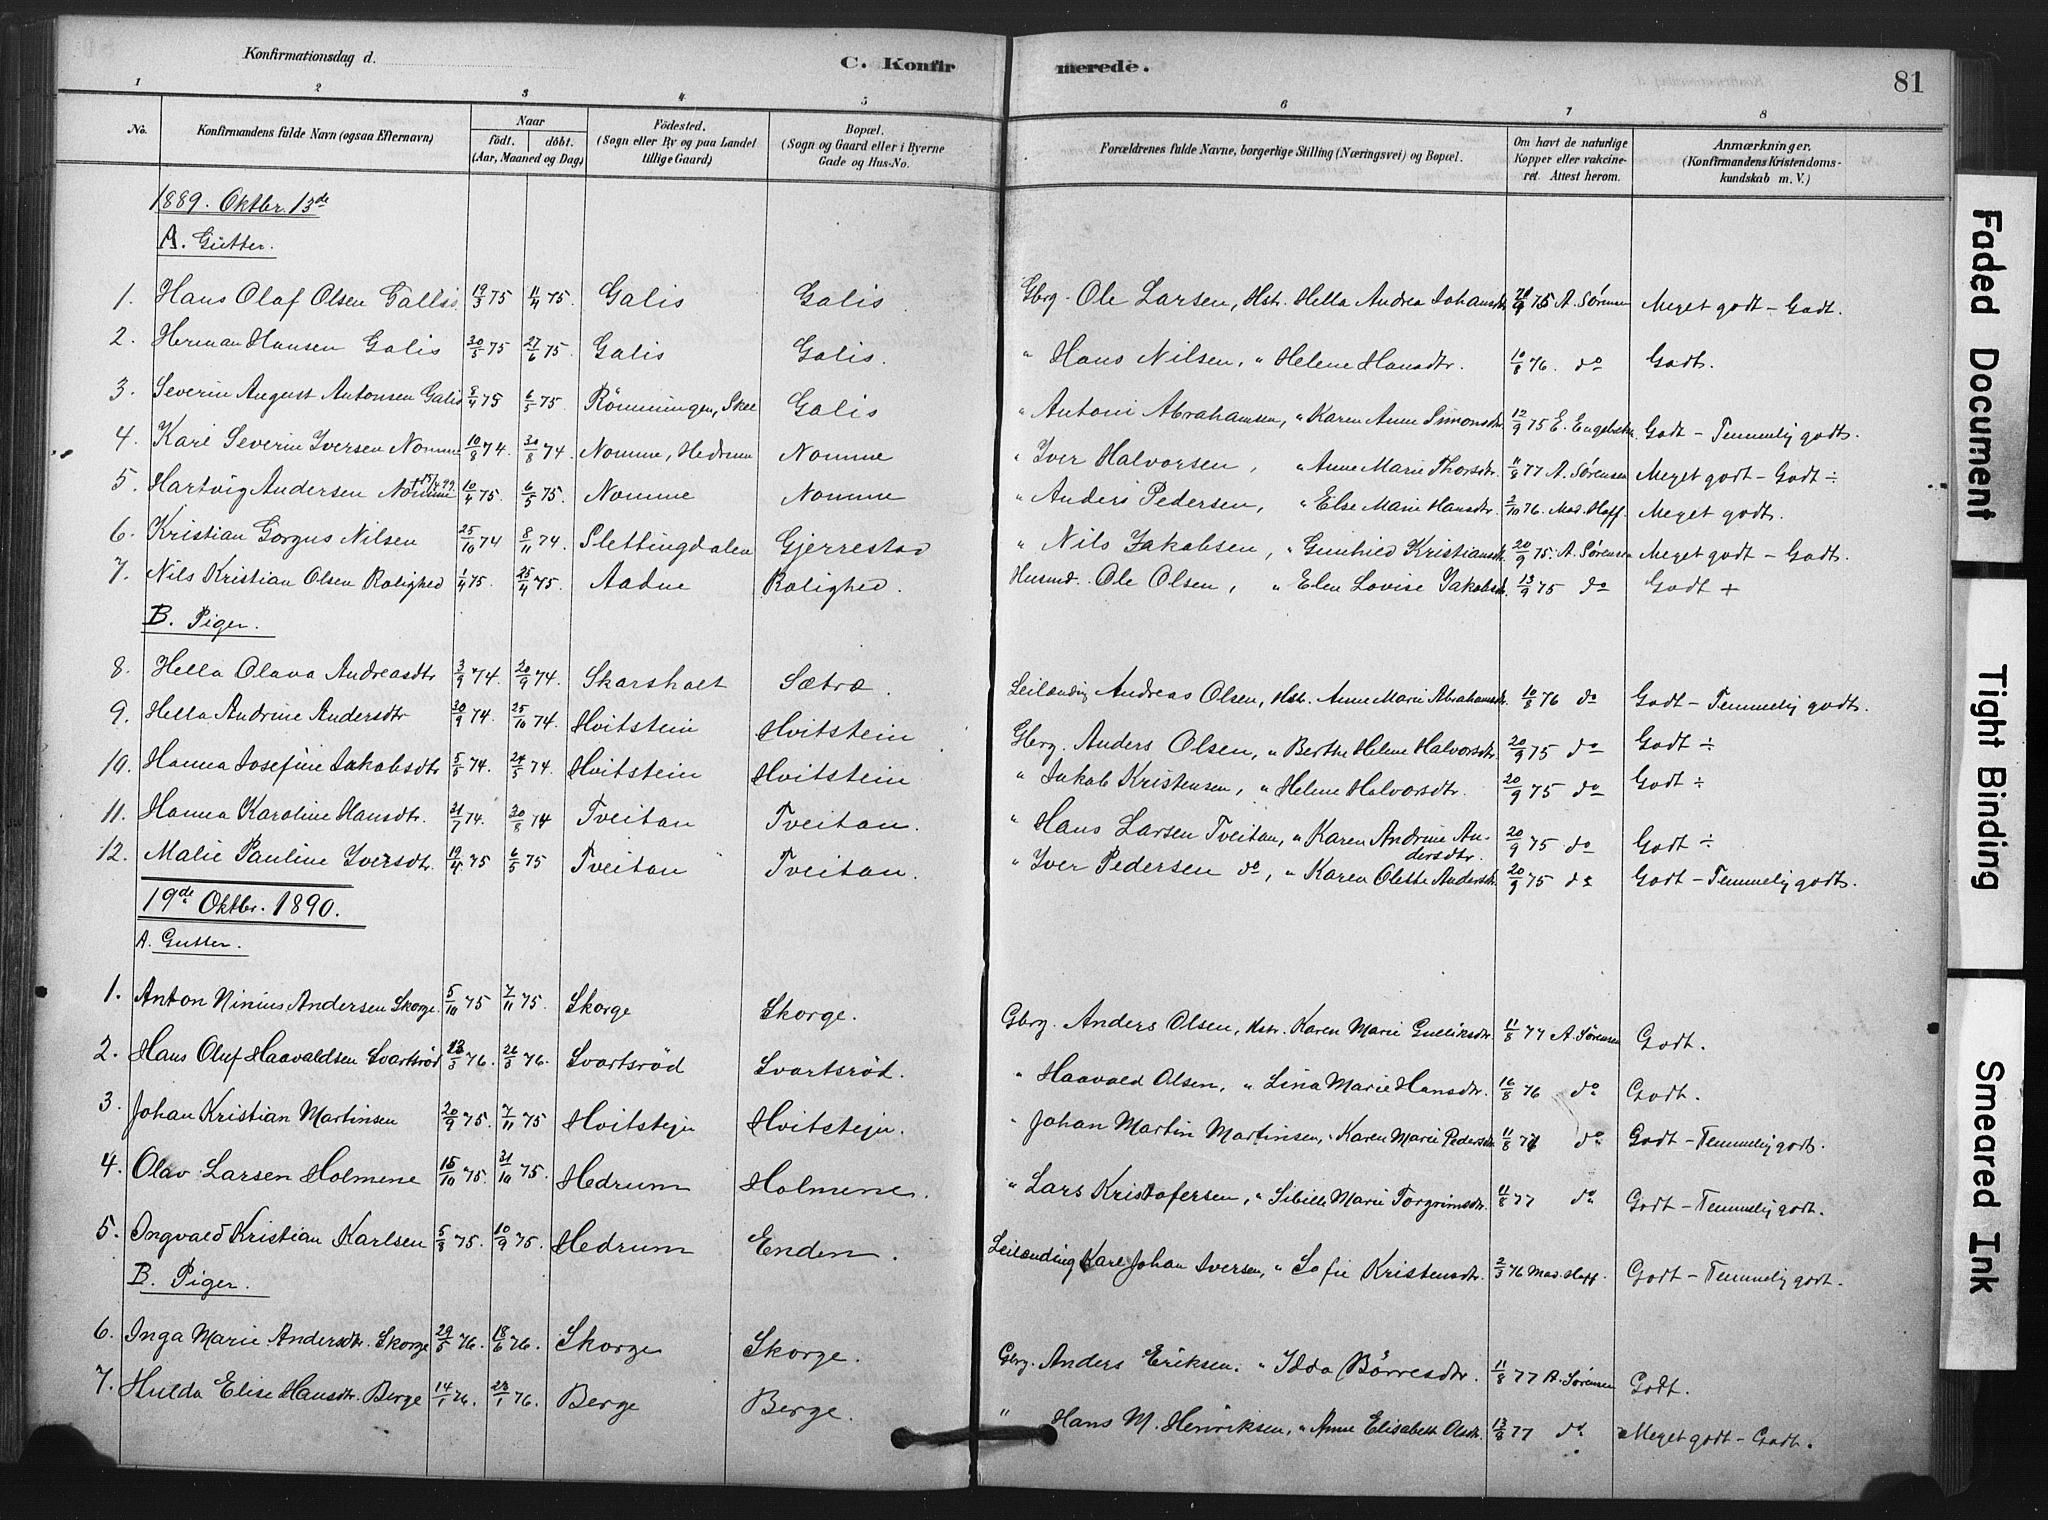 Konfirmationsdag d. C. Konfirmerede. 81
1 2 3 4 5 6 7 8
No. Konfirmandens fulde Navn (ogsaa Efternavn) Naar födt. döbt. (Aar, Maaned og Dag) Födested. (Sogn eller By og paa Landet tillige Gaard) Bopæl. (Sogn og Gaard eller i Byerne Gade og Hus-No. Forældrenes fulde Navne, borgerlige Stilling (Næringsvei) og Bopæl. Om havt de naturlige Kopper eller vakcineret. Attest herom. Anmærkninger. (Konfirmandens Kristendomskundskab m. V.)
1889. Oktbr. 13de
A. Gutter.
1. Hans Olaf Olsen Gallis 19/3 75 11/4 75. Galis Galis Gbrg. Ole Larsen, Hstr. Hella Andrea Johansdtr. 75 A. Sørensen Meget godt - Godt.
2. Herman Hansen Galis 30/5 75 27/6 75. Galis Galis. " Hans Nilsen, " Helene Hansdtr. 10/8 76. do Godt.
3. Severin August Antonsen Galis 9/4 75 6/5 75. Rönningen, Skee Galis " Anton Abrahamsen, " Karen Anne Simonsdtr 12/9 75 E. Engebretsen Godt - Temmelig godt.
4. Karl Severin Iversen Nomme 10/8 74. 30/8 74. Nomme, Hedrum Nomme " Iver Halvorsen, " Anne Marie Thorsdtr. 11/8 77 A. Sørensen Meget godt - Godt ÷
5. Hartvig Andersen Nomme 10/4 75. 6/5 75. Nomme Nomme " Anders Pedersen, " Else Marie Hansdtr. 2/10 76. Mad. Hoff. Meget godt.
6. Kristian Gorgus Nilsen 25/10 74 8/11 74. Slettingdalen Gjerrestad " Nils Jakobsen, " Gunhild Kristiansdtr. 20/9 75. A. Sørensen Meget godt - Godt.
7. Nils Kristian Olsen Rolighed 1/4 75. 25/4 75. Aadne Rolighed. Husmd. Ole Olsen, " Elen Lovise Jakobsdtr. 13/9 75 do Godt +
B. Piger.
8. Hella Olava Andreasdtr 3/9 74. 20/9 74. Skarsholt Sætra. Leilænding Andreas Olsen, Hstr. Anne Marie Abrahamsdtr. 10/8 76 do Godt - Temmelig godt.
9. Hella Andrine Andersdtr 30/9 74. 25/10 74. Hvitstein Hvitstein Gbrg. Anders Olsen, " Berthe Helene Halvorsdtr. 20/9 75 do Godt ÷
10. Hanna Josefine Jakobsdtr 5/5 74. 24/5 74. Hvitstein Hvitstein " Jakob Kristensen, " Helene Halvorsdtr. 20/9 75 do Godt ÷
11. Hanna Karoline Hansdtr. 21/7 74. 30/8 74 Tveitan Tveitan. " Hans Larsen Tveitan, " Karen Andrine Andersdtr. 20/9 75 do Godt ÷
12. Malie Pauline Iversdtr. 19/4 75 6/5 75 Tveitan Tveitan. " Iver Pedersen do, " Karen Olette Andersdtr 20/9 75 do Godt - Temmelig godt.
19de Oktbr. 1890.
A. Gutter.
1. Anton Ninius Andersen Skorge. 5/10 75 7/11 75. Skorge Skorge. Gbrg. Anders Olsen, Hstr. Karen Marie Gulliksdtr. 11/8 77 A. Sørensen Godt.
2. Hans Oluf Haavaldsen Svartsröd 13/3 76. 26/3 76. Svartsröd Svartsröd. " Haavald Olsen, " Lina Marie Hansdtr. 16/8 76 do Godt.
3. Johan Kristian Martinsen 20/9 75. 7/11 75 Hvitstejn Hvitstejn. " Johan Martin Martinsen, " Karen Marie Pedersdtr 11/8 77 do Godt - Temmelig godt.
4. Olav Larsen Holmene 15/10 75. 31/10 75. Hedrum Holmene. " Lars Kristofersen, " Sibille Marie Torgrimsdtr. 11/8 77 do Godt - Temmelig godt.
5. Ingvald Kristian Karlsen 5/8 75. 10/9 75. Hedrum Enden. Leilænding Karl Johan Iversen, " Sofie Kristensdtr. 2/3 76 Mad. Hoff. Godt - Temmelig godt.
B. Piger.
6. Inga Marie Andersdtr. Skorge 29/5 76. 18/6 76. Skorge Skorge. Gbrg. Anders Eriksen. " Idda Börresdtr. 11/8 77 A. Sørensen Godt.
7. Hulda Elise Hansdtr. Berge 14/1 76. 23/1 76. Berge Berge. " Hans M. Henriksen, " Anne Elisabeth Olsdtr. 13/8 77 do Meget godt - Godt.
Faded Document
Tight Binding
Smeared Ink